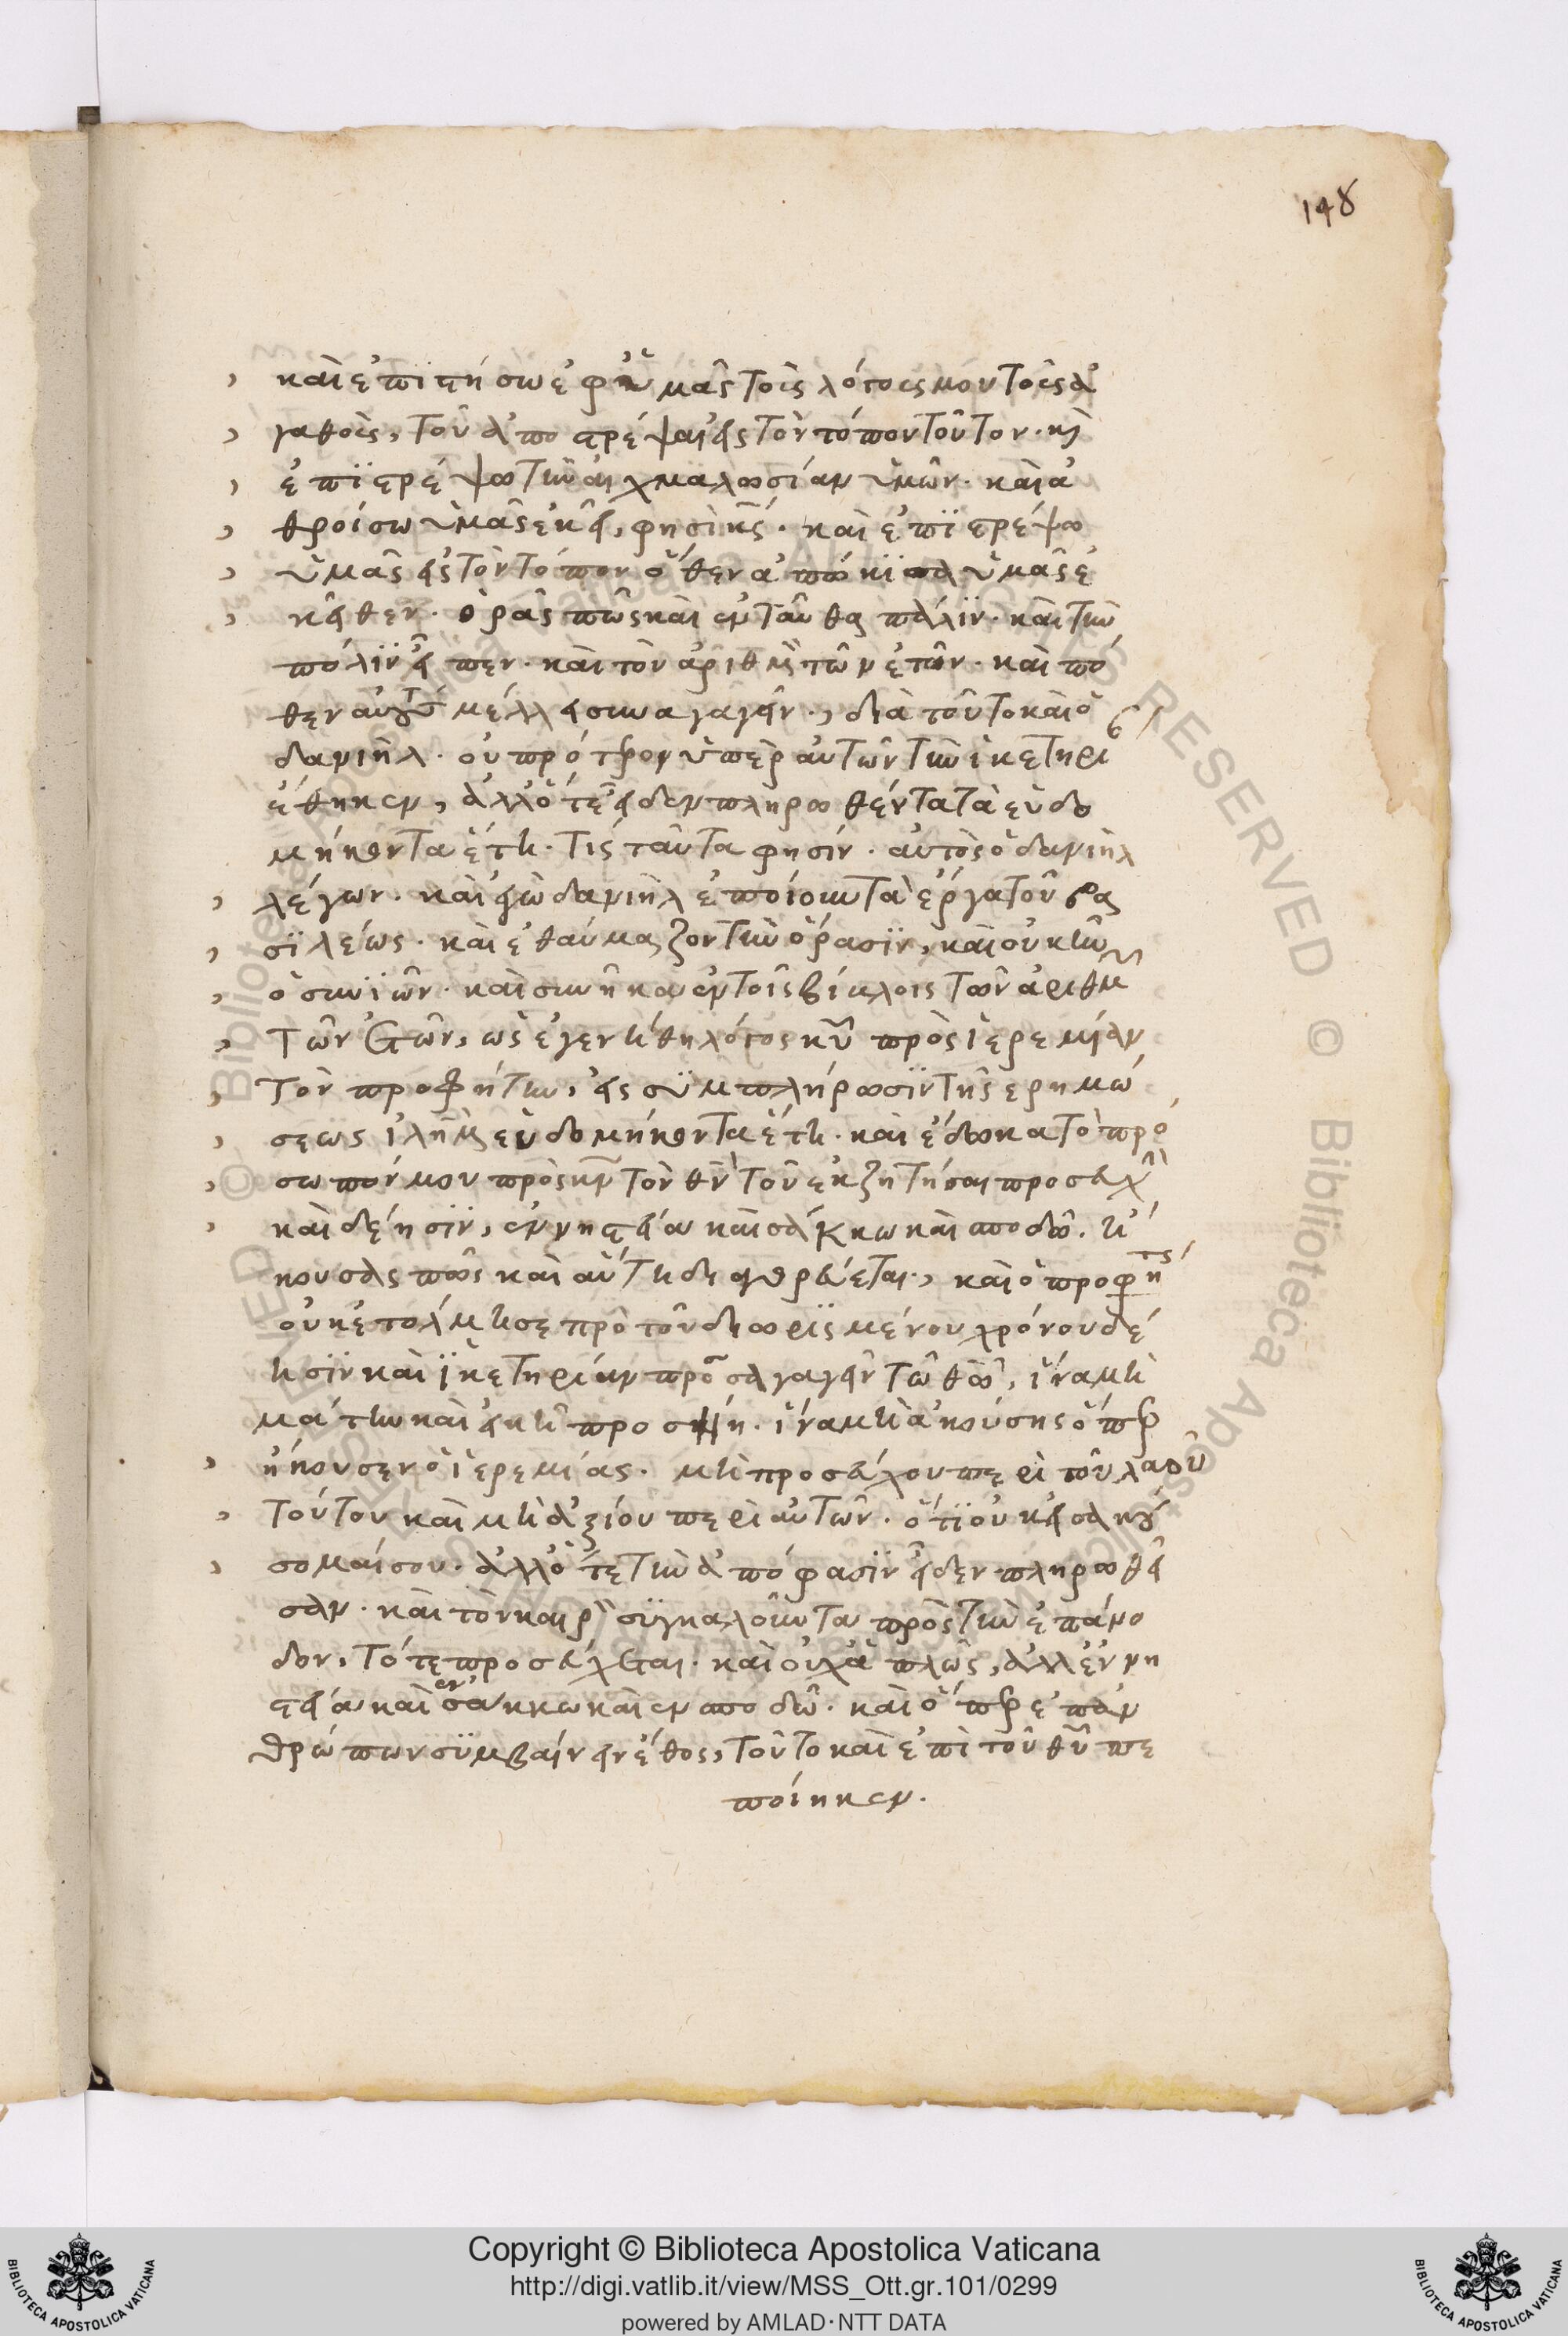 148
καὶ ἐπιστήσω ἐφ' ὑμᾶς τοὺς λόγους μου τοὺς ἀ
γαθοὺς, τοῦ ἀποστρέψαι εἰς τὸν τόπον τοῦτον. κὶ
ἐπιστρέψω τὴν αἰχμαλωσίαν ὑμῶν. καὶ ἀ
θροίσω ὑμᾶς ἐκεῖ, φησὶ κς. καὶ ἐπιστρέψω
ὑμᾶς εἰς τὸν τόπον ὅθεν ἀπώκισα ὑμᾶς ἐ
κεῖθεν. ὁρᾶς πῶς καὶ ἐνταῦθα πάλιν. καὶ τὴν
πόλιν εἶπεν. καὶ τὸν ἀριθμὸν τῶν ἐτῶν. καὶ πό
θεν αὐτοὺς μέλλει συναγαγεῖν., διὰ τοῦτο καὶ ὁ
δανιὴλ. οὐ πρότερον ὑπὲρ αὐτῶν τὴν ἱκετηρι
ἔθηκεν, ἀλλ' ὅτε εἶδεν πληρωθέντα τὰ ἑβδο
μήκοντα ἔτη. τίς ταῦτα φησίν. αὐτὸς ὁ δανιὴλ
λέγων. καὶ ἐγὼ δανιὴλ ἐποίουν τὰ ἔργα τοῦ βα
σιλέως. καὶ ἐθαύμαζον τὴν ὅρασιν, καὶ οὐκ ἦν
ὁ συνιῶν. καὶ συνῆκα ἐν τοῖς βίβλοις τὸν ἀριθμ
τῶν ἐτῶν, ὡς ἐγενήθη λόγος κυ πρὸς ἱερεμίαν
τὸν προφήτην, εἰς συμπλήρωσιν τῆς ερημώ
σεως ἱλημ ἑβδομήκοντα ἔτη. καὶ ἔδωκα τὸ πρό
σωπόν μου πρὸς κν τὸν θν τοῦ ἐκζητῆσαι προσευχὴν
καὶ δέησιν, ἐν νηστεία καὶ σάκκω καὶ σποδῶ. ἤ
κουσας πῶς καὶ αὕτη διερμηνεύεται., καὶ ὁ προφήτης
οὐκ ἐτόλμησε πρὸ τοῦ διωρισμένου χρόνου δέ
ησιν καὶ ἱκετηρίαν προσαγαγεῖν τῶ θῶ, ἵνα μὴ
μάτην καὶ εἰκῆ προσίη. ἵνα μὴ ἀκούσης ὅπερ
ἤκουσεν ὁ ἱερεμίας. μὴ προσεύχου περὶ τοῦ λαοῦ
τούτου καὶ μὴ ἀξίου περὶ αὐτῶν. ὅτι οὐκ εἰσακού
σομαί σου. ἀλλ' ὅτε τὴν ἀπόφασιν εἶδεν πληρωθεῖ
σαν. καὶ τὸν καιρὸν συγκαλοῦντα πρὸς τὴν ἐπάνο
δον, τότε προσεύχεται. καὶ οὐχ ἁπλῶς, ἀλλ' ἐν νη
στεία καὶ ἐν σάκκω καὶ ἐν σποδῶ. καὶ ὅπερ ἐπ' ἀν
θρώπων συμβαίνειν ἔθος, τοῦτο καὶ ἐπὶ τοῦ θυ πε
ποίηκεν.
Copyright © Biblioteca Apostolica Vaticana
http://digi.vatlib.it/view/MSS_Ott.gr.101/0299
powered by AMLAD·NTT DATA